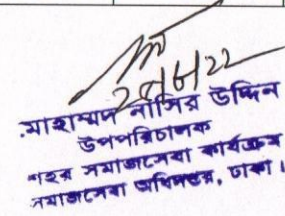 মোহাম্মদ নাসির উদ্দিন
উপপরিচালক
শহর সমাজসেবা কার্যক্রম
সমাজসেবা অধিদফতর, ঢাকা।